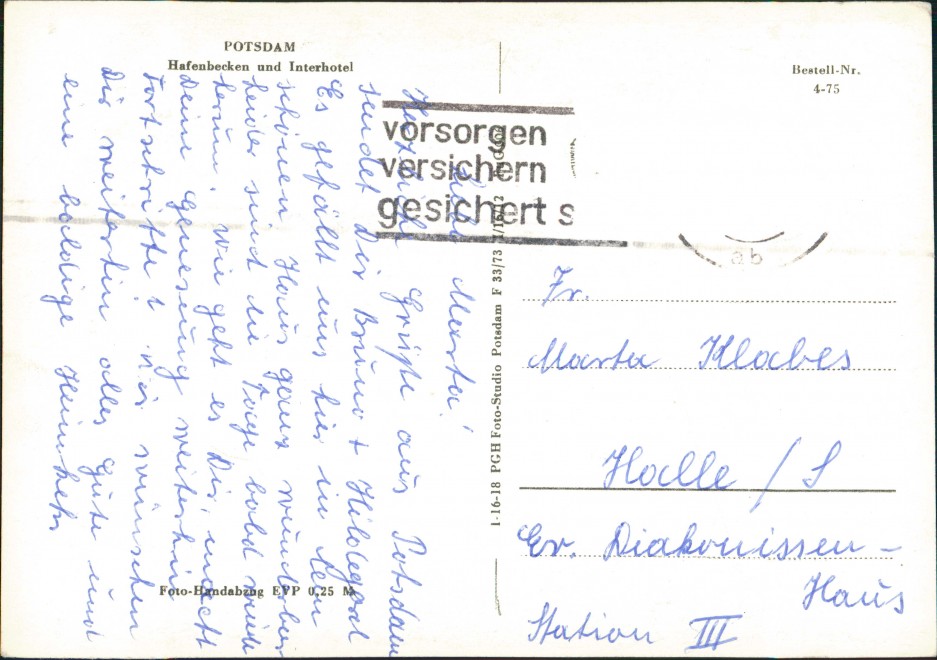 POTSDAM
Hafenbecken und Interhotel
Bestell-Nr.
4-75
vorsorgen
versichern
gesichert s
ab
Liebe Marta!
Herzliche Grüße aus Potsdam
sendet Dir Bruno + Hildegard
Es gefällt uns hier in dem
schönen Haus ganz wunderbar
leider sind die Tage bald wieder
herum. Wie geht es Dir, macht
Deine Genesung weiterhin
Fortschritte? Wir wünschen
Dir weiterhin alles Gute und
eine baldige Heimkehr
Fr.
Marta Klabes
Halle / S
Ev. Diakonissen-
Haus
Station III
1-16-18 PGH Foto-Studio Potsdam F 33/73
Foto-Handabzug EVP 0,25 M